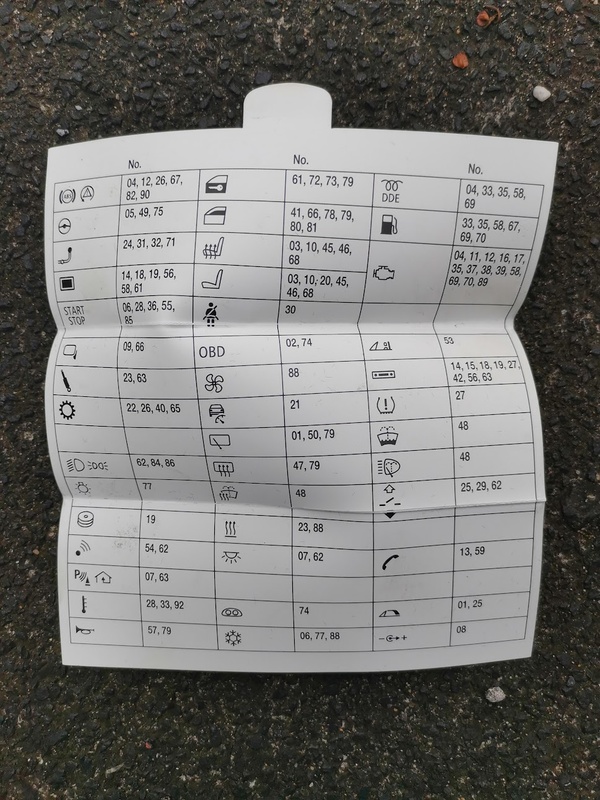 No.
04, 12, 26, 67,
82, 90
05, 49, 75
24, 31, 32, 71
14, 18, 19, 56,
58, 61
START
STOP
06, 28, 36, 55,
85
09, 66
23, 63
22, 26, 40, 65
62, 84, 86
77
19
54, 62
P
07, 63
28, 33, 92
57, 79
No.
61, 72, 73, 79
41, 66, 78, 79,
80, 81
03, 10, 45, 46,
68
03, 10, 20, 45,
46, 68
30
OBD
02, 74
88
21
01, 50, 79
47, 79
48
23, 88
07, 62
74
06, 77, 88
No.
DDE
04, 33, 35, 58,
69
33, 35, 58, 67,
69, 70
04, 11, 12, 16, 17,
35, 37, 38, 39, 58,
69, 70, 89
53
14, 15, 18, 19, 27,
42, 56, 63
27
48
48
25, 29, 62
13, 59
01, 25
08